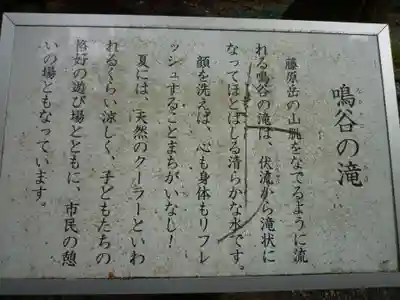 鳴谷の滝
藤原岳の山肌をなでるように流
れる鳴谷の滝は、伏流から滝状に
なってほとばしる清らかな水です。
顔を洗えば、心も身体もリフレ
ッシュすることまちがいなし！
夏には、天然のクーラーといわ
れるくらい涼しく、子どもたちの
格好の遊び場とともに、市民の憩
いの場ともなっています。